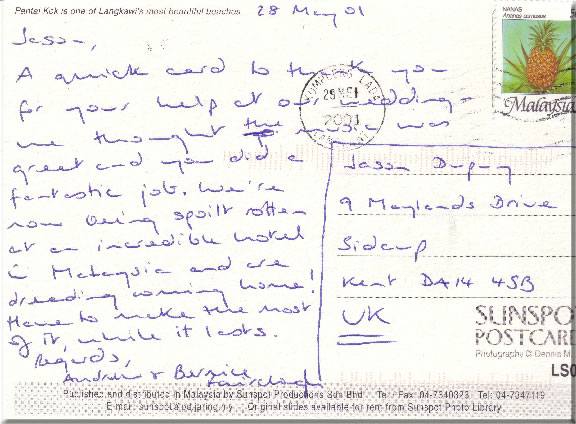 Pantai Kok is one of Langkawi's most beautiful beaches
28 May 01
NANAS
Ananas comosus
Malaysia
Jason,
A quick card to thank you
for your help at our wedding -
we thought the music was
great and you did a
fantastic job. We're
now being spoilt rotten
at an incredible hotel
in Malaysia and are
dreading coming home!
Have to make the most
of it, while it lasts.
Regards,
Andrew + Bernice
Fairclough
2001
Jason Dupuy
9 Maylands Drive
Sidcup
Kent DA14 4SB
UK
SUNSPO
POSTCAR
Photography © Dennis M
LS0
Published and distributed in Malaysia by Sunspot Productions Sdn Bhd Tel / Fax: 04-7340323 Tel: 04-7347119
E-mail: sunspot@pd.jaring.my Original slides available for rent from Sunspot Photo Library